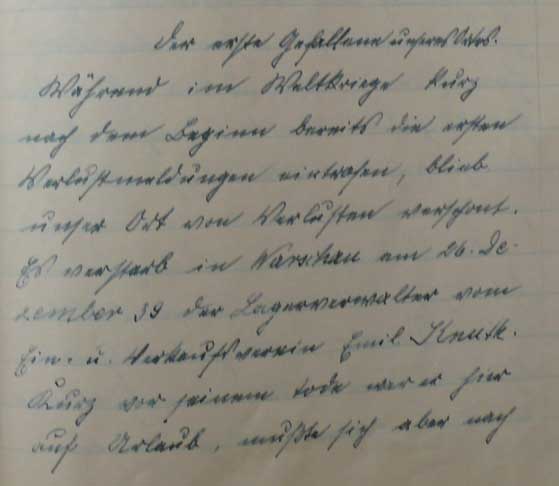 Der erste Gefallene unseres Ortes.
Während im Weltkriege kurz
nach dem Beginn bereits die ersten
Verlustmeldungen eintrafen, blieb
unser Ort von Verlusten verschont.
Es verstarb in Warschau am 26. De-
zember 39 der Lagerverwalter vom
Ein- u. Verkaufsverein Emil
Kurz vor seinem Tode war er hier
auf Urlaub, mußte sich aber nach